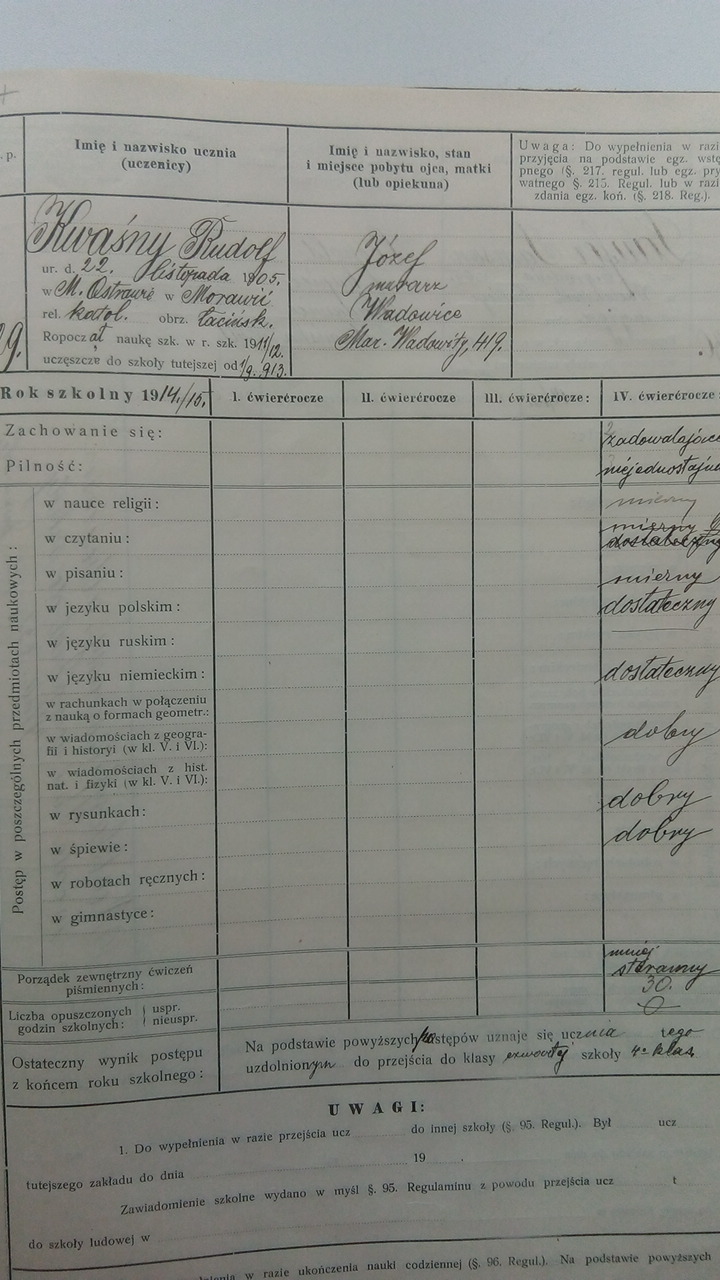 . p.
Imię i nazwisko ucznia
(uczenicy)
Imię i nazwisko, stan
i miejsce pobytu ojca, matki
(lub opiekuna)
Uwaga: Do wypełnienia w razi
przyjęcia na podstawie egz. wstę
pnego (§. 217. regul. lub egz. pry
watnego §. 215. Regul. lub w razi
zdania egz. koń. (§. 218. Reg.).
9.
Kwaśny Rudolf
ur. d. 22. listopada 1905.
w M. Ostrawie w Morawii
rel. katol. obrz. łacińsk.
Ropoczął naukę szk. w r. szk. 1911/12.
uczęszcza do szkoły tutejszej od 1/9. 913.
Józef
murarz
Wadowice
Mar. Wadowity, 419.
Rok szkolny 1914./15. I. ćwierćrocze II. ćwierćrocze III. ćwierćrocze: IV. ćwierćrocze:
Zachowanie się: zadowalające
Pilność: niejednostajna
Postęp w poszczególnych przedmiotach naukowych:
w nauce religii: mierny
w czytaniu: mierny dostateczny
w pisaniu: mierny
w jezyku polskim: dostateczny
w języku ruskim:
w języku niemieckim: dostateczny
w rachunkach w połączeniu
z nauką o formach geometr.: dobry
w wiadomościach z geogra-
fii i historyi (w kl. V. i VI.):
w wiadomościach z hist.
nat. i fizyki (w kl. V. i VI.):
w rysunkach: dobry
w śpiewie: dobry
w robotach ręcznych:
w gimnastyce:
Porządek zewnętrzny ćwiczeń
piśmiennych: mniej
staranny
Liczba opuszczonych
godzin szkolnych: uspr. 30.
nieuspr. 0
Ostateczny wynik postępu
z końcem roku szkolnego:
Na podstawie powyższych postępów uznaje się ucznia tego
uzdolnionym do przejścia do klasy czwartej szkoły 4º klas
UWAGI:
1. Do wypełnienia w razie przejścia ucz do innej szkoły (§. 95. Regul.). Był ucz
tutejszego zakładu do dnia 19 .
Zawiadomienie szkolne wydano w myśl §. 95. Regulaminu z powodu przejścia ucz t
do szkoły ludowej w
w razie ukończenia nauki codziennej (§. 96. Regul.). Na podstawie powyższych